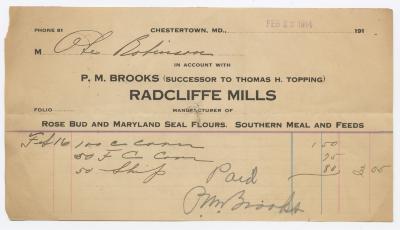 PHONE 81 CHESTERTOWN, MD., FEB 23 1914 191
M Robinson
IN ACCOUNT WITH
P. M. BROOKS (SUCCESSOR TO THOMAS H. TOPPING)
RADCLIFFE MILLS
FOLIO MANUFACTURER OF
ROSE BUD AND MARYLAND SEAL FLOURS. SOUTHERN MEAL AND FEEDS
Feb 16 100 C Corn 1 50
50 F C Corn 75
50 Ship 80
Paid
P.M. Brooks